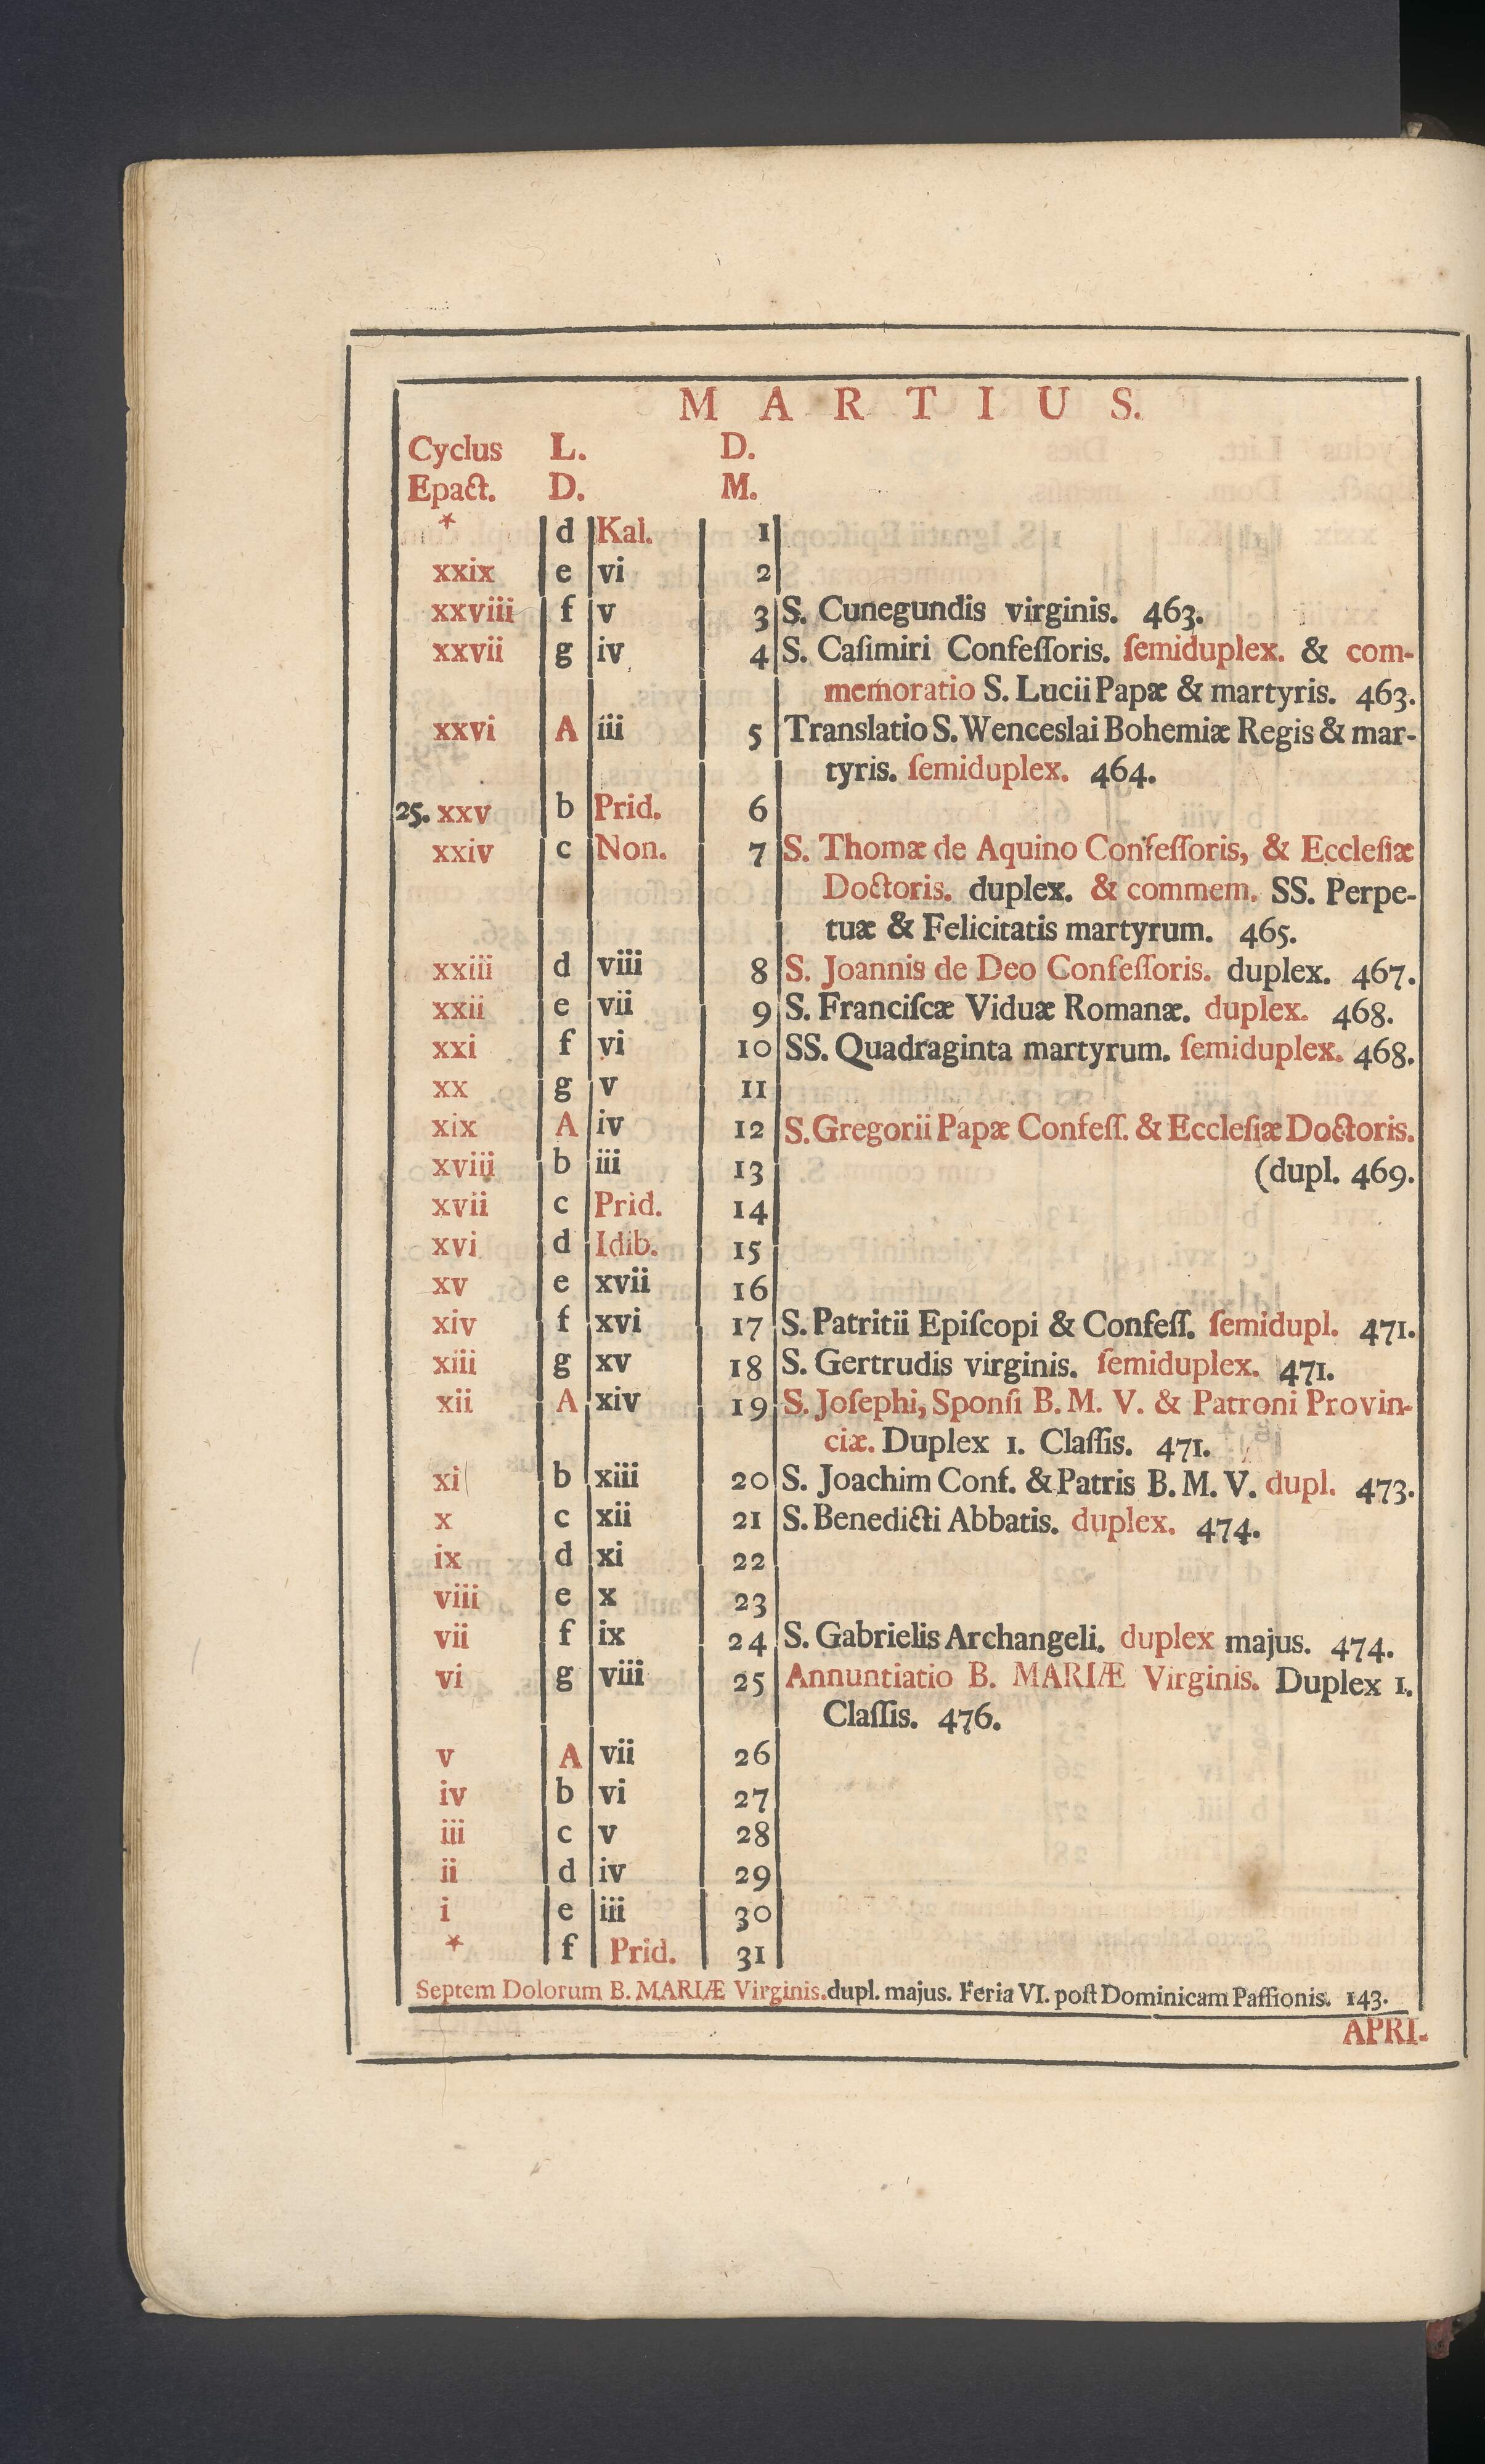 MARTIUS.
Cyclus L. D.
Epact. D. M.
* d Kal. 1
xxix e vi 2
xxviii f v 3 S. Cunegundis virginis. 463.
xxvii g iv 4 S. Caſimiri Confeſſoris. ſemiduplex. & com-
memoratio S. Lucii Papæ & martyris. 463.
xxvi A iii 5 Translatio S. Wenceslai Bohemiæ Regis & mar-
tyris. ſemiduplex. 464.
25. xxv b Prid. 6
xxiv c Non. 7 S. Thomæ de Aquino Confeſſoris, & Eccleſiæ
Doctoris. duplex. & commem. SS. Perpe-
tuæ & Felicitatis martyrum. 465.
xxiii d viii 8 S. Joannis de Deo Confeſſoris. duplex. 467.
xxii e vii 9 S. Franciſcæ Viduæ Romanæ. duplex. 468.
xxi f vi 10 SS. Quadraginta martyrum. ſemiduplex. 468.
xx g v 11
xix A iv 12 S. Gregorii Papæ Confeſſ. & Eccleſiæ Doctoris.
xviii b iii 13 (dupl. 469.
xvii c Prid. 14
xvi d Idib. 15
xv e xvii 16
xiv f xvi 17 S. Patritii Epiſcopi & Confeſſ. ſemidupl. 471.
xiii g xv 18 S. Gertrudis virginis. ſemiduplex. 471.
xii A xiv 19 S. Joſephi, Sponſi B. M. V. & Patroni Provin-
ciæ. Duplex 1. Claſſis. 471.
xi b xiii 20 S. Joachim Conf. & Patris B. M. V. dupl. 473.
x c xii 21 S. Benedicti Abbatis. duplex. 474.
ix d xi 22
viii e x 23
vii f ix 24 S. Gabrielis Archangeli. duplex majus. 474.
vi g viii 25 Annuntiatio B. MARIÆ Virginis. Duplex 1.
Claſſis. 476.
v A vii 26
iv b vi 27
iii c v 28
ii d iv 29
i e iii 30
* f Prid. 31
Septem Dolorum B. MARIÆ Virginis. dupl. majus. Feria VI. poſt Dominicam Paſſionis. 143.
APRI-